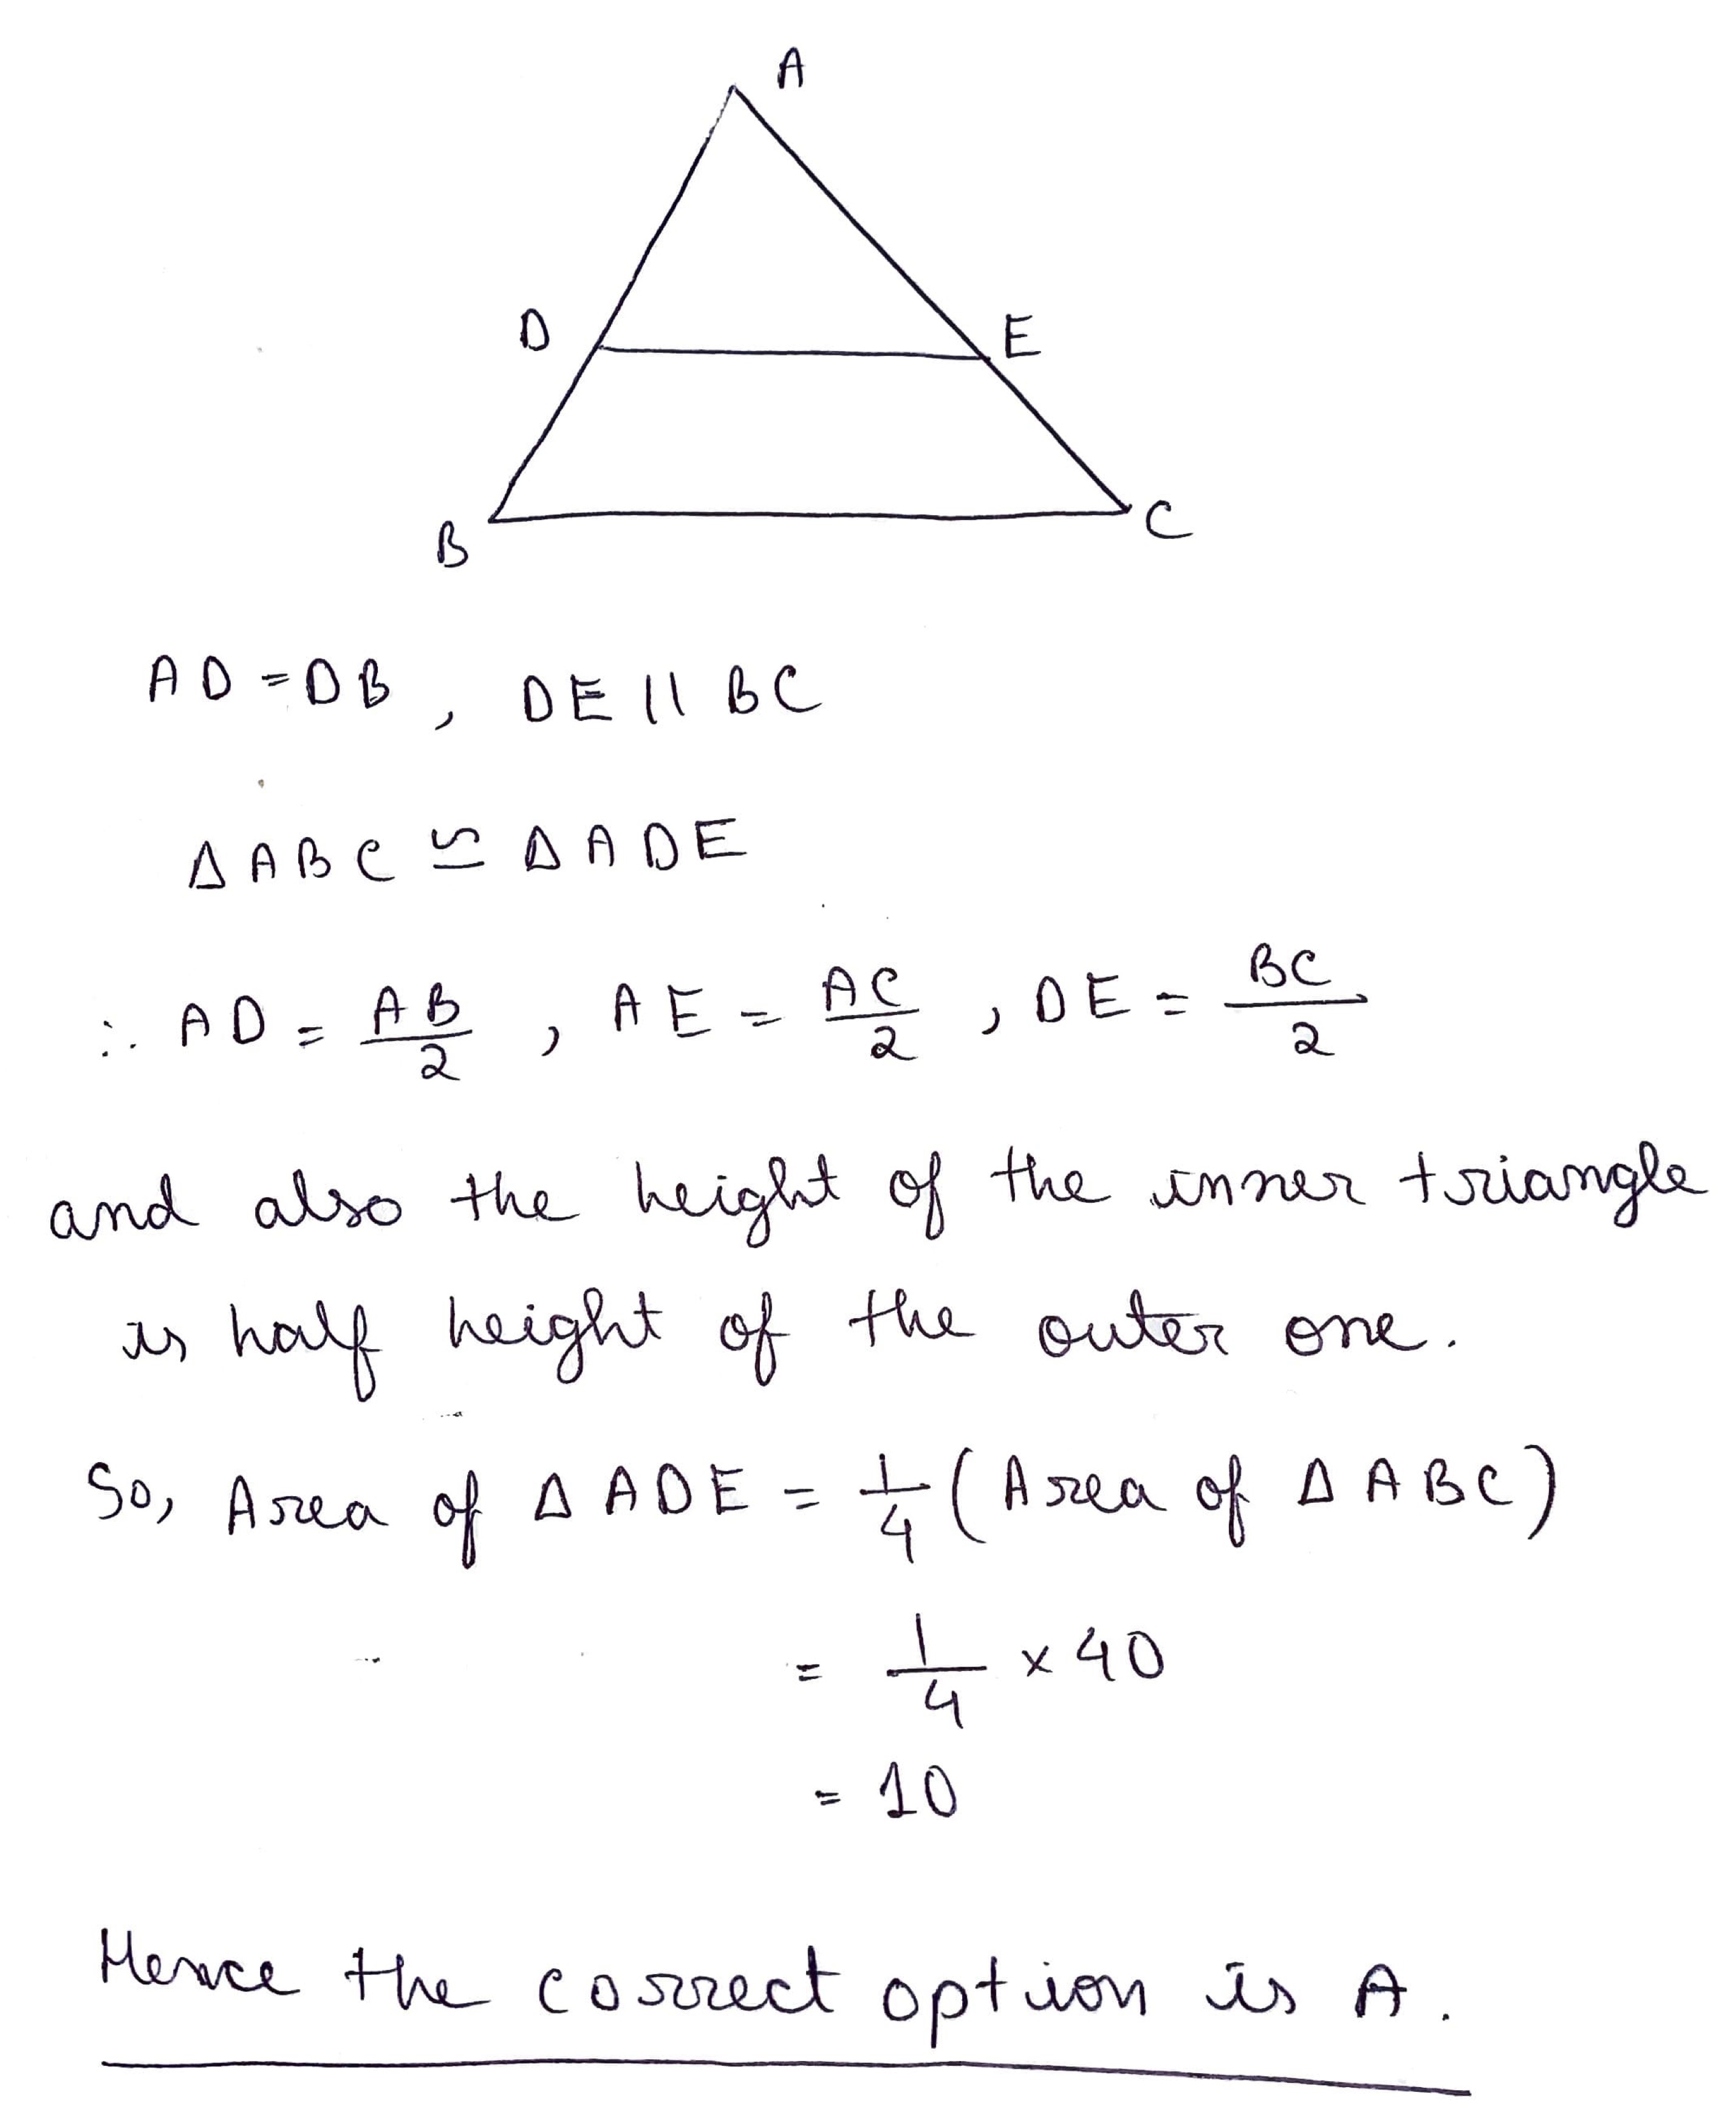 A
D
E
B
C
AD = DB , DE || BC
Δ ABC ≌ Δ ADE
∴ AD = AB/2 , AE = AC/2 , DE = BC/2
and also the height of the inner triangle
is half height of the outer one.
So, Area of Δ ADE = 1/4 (Area of Δ ABC)
= 1/4 × 40
= 10
Hence the correct option is A.